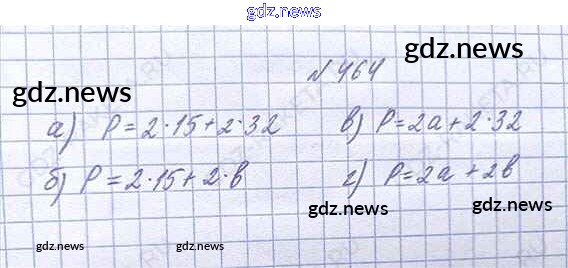 gdz.news
№464
gdz.news
gdz.news
а) P=2·15+2·32
в) P=2a+2·32
б) P=2·15+2·b
г) P=2a+2b
gdz.news
gdz.news
gdz.news
gdz.news